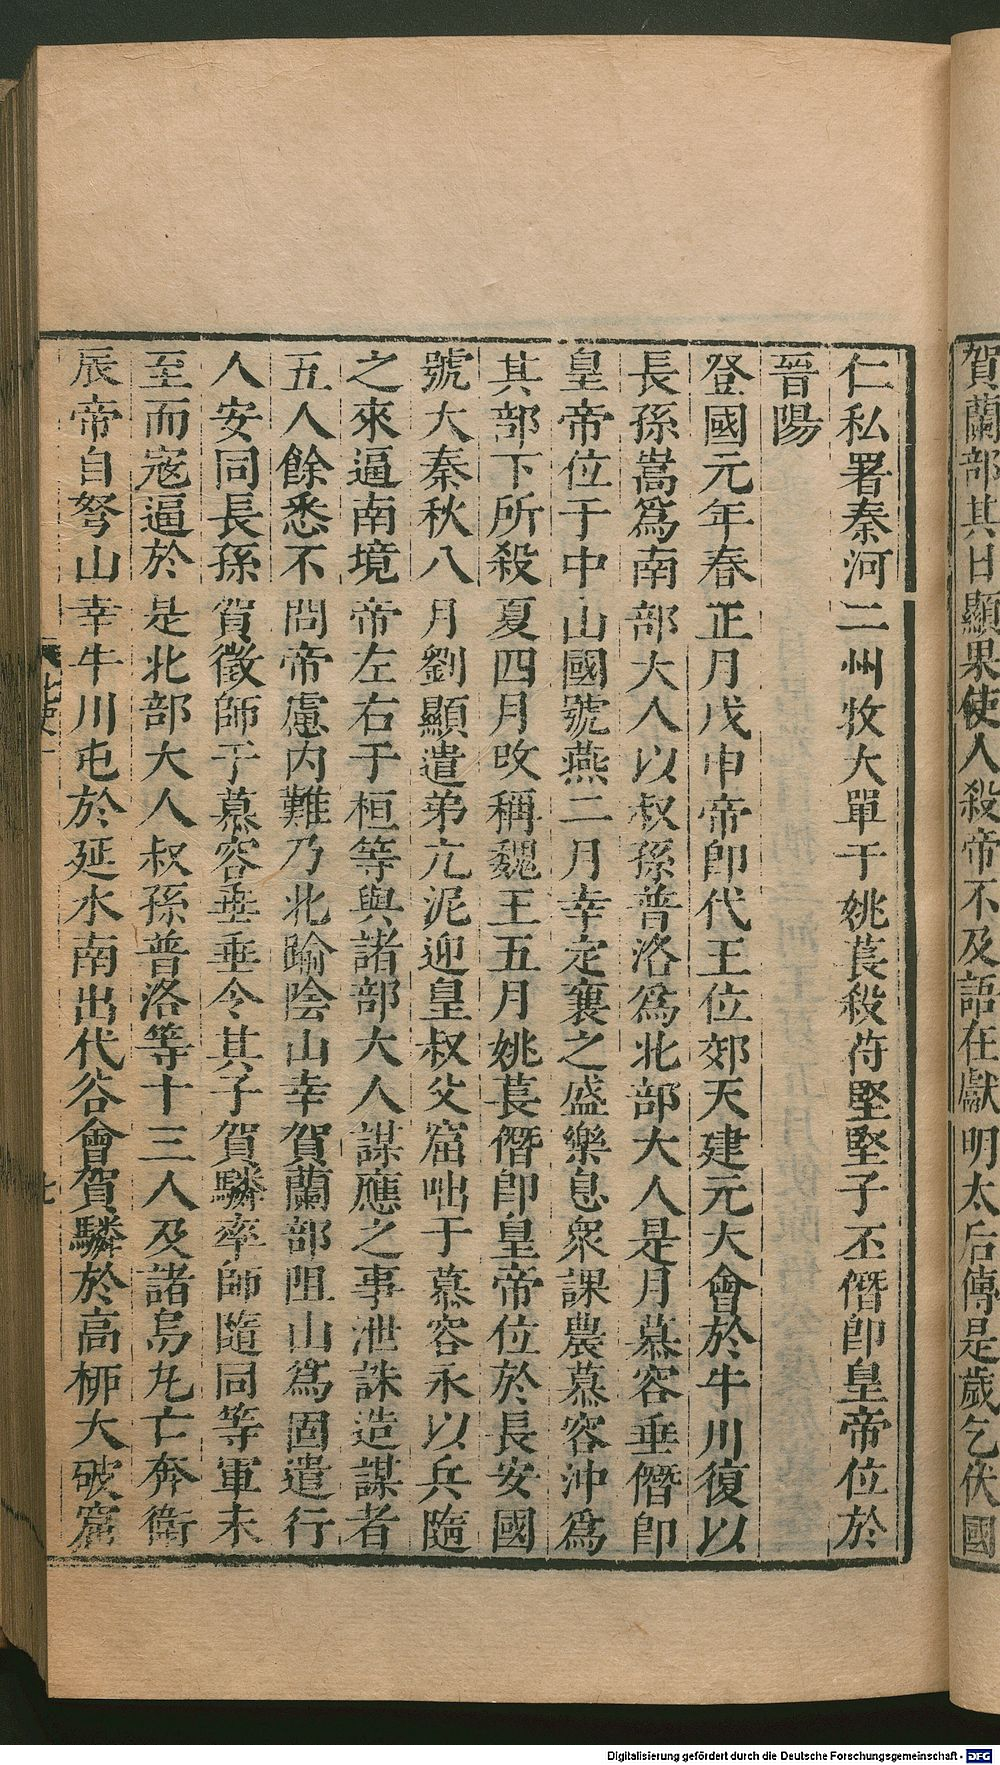 賀蘭部其日顯果使人殺帝不及語在獻明太后傳是歲乞伏國
仁私署秦河二州牧大單于姚萇殺苻堅堅子丕僭卽皇帝位於
晉陽
登國元年春正月戊申帝卽代王位郊天建元大會於牛川復以
長孫嵩爲南部大人以叔孫普洛爲北部大人是月慕容垂僭卽
皇帝位于中山國號燕二月幸定襄之盛樂息衆課農慕容沖爲
其部下所殺夏四月改稱魏王五月姚萇僭卽皇帝位於長安國
號大秦秋八月劉顯遣弟亢泥迎皇叔父窟咄于慕容永以兵隨
之來逼南境帝左右于桓等與諸部大人謀應之事泄誅造謀者
五人餘悉不問帝慮内難乃北踰隂山幸賀蘭部阻山爲固遣行
人安同長孫賀徵師于慕容垂垂令其子賀驎率師隨同等軍未
至而宼逼於是北部大人叔孫普洛等十三人及諸烏丸亡奔衛
辰帝自弩山幸牛川屯於延水南出代谷會賀驎於高栁大破窟
Digitalisierung gefördert durch die Deutsche Forschungsgemeinschaft - DFG